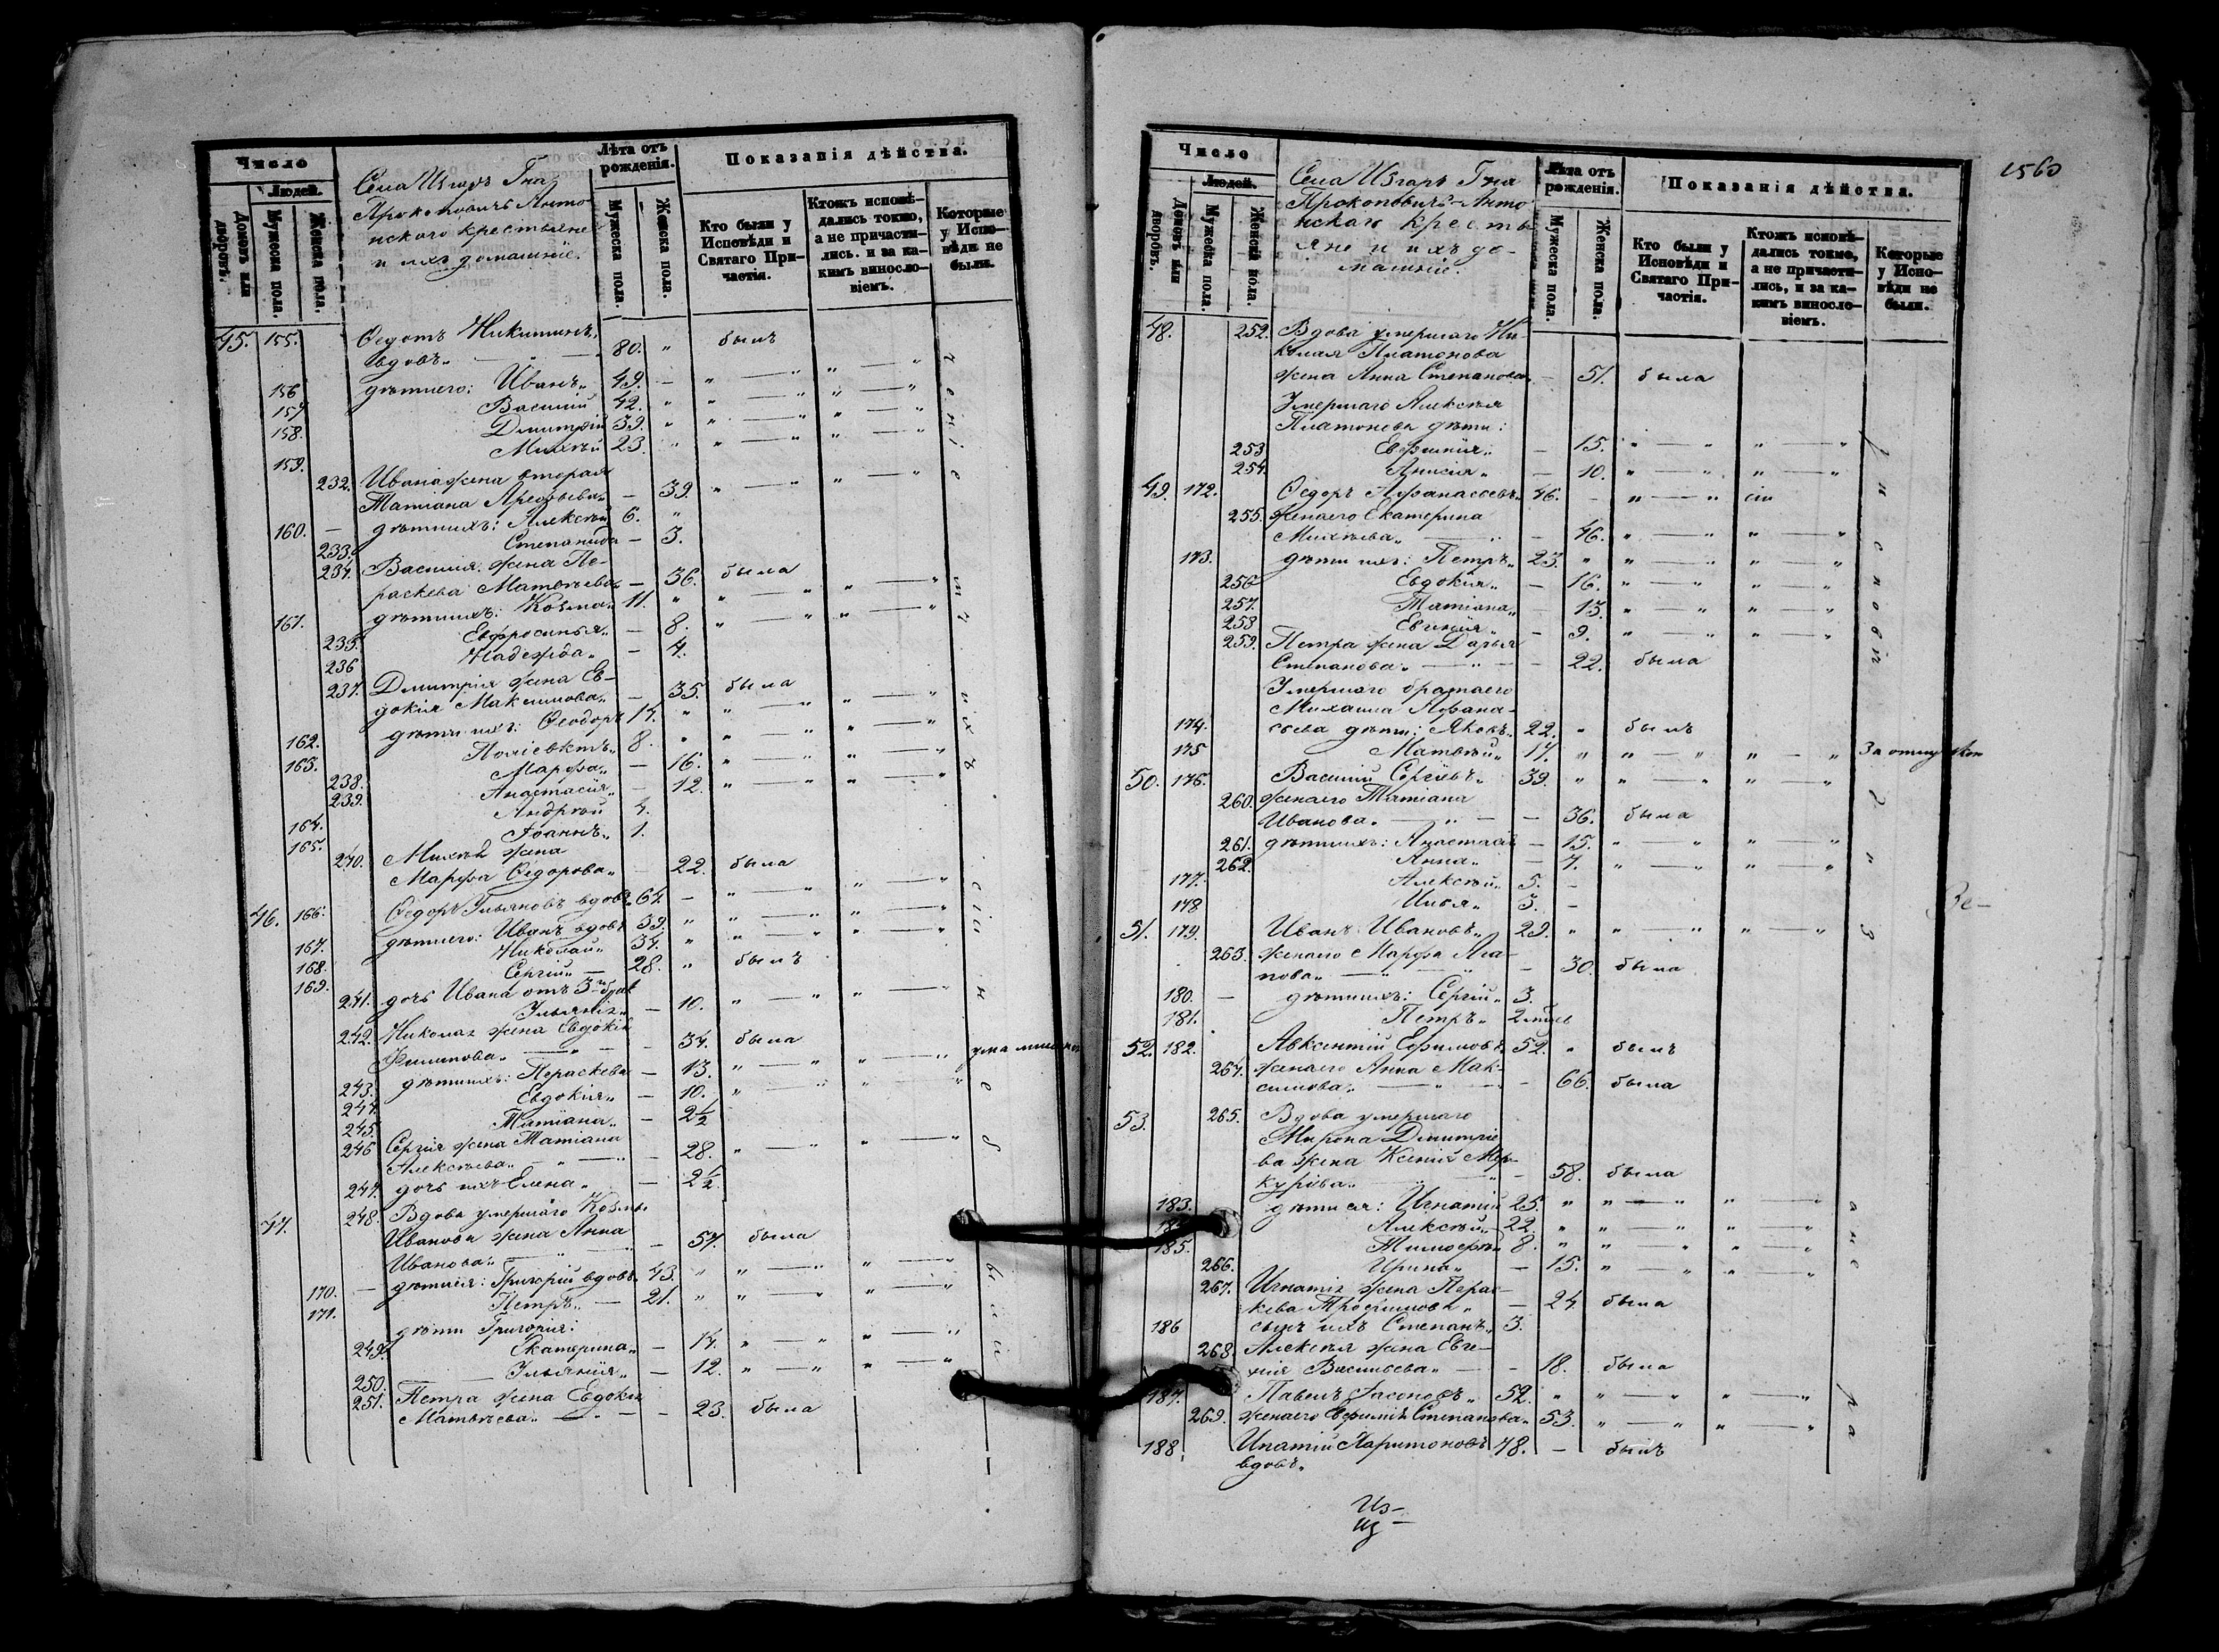 Число
Людей.
Домовъ или дворовъ.
Мужеска пола.
Женска пола.
Села Изгаръ Гна
Прокоповичъ Анто
нскаго крестьяне
и ихъ домашніе.
Лѣта отъ рожденія.
Мужеска пола.
Женска пола.
Показанія дѣйства.
Кто были у Исповѣди и Святаго Причастія.
Ктожъ исповѣдались токмо, а не причастились, и за какимъ винословіемъ.
Которые у Исповѣди не были.
45. 155. Ѳедотъ Никитинъ,
вдовъ. 80. " былъ
156 дѣти его: Иванъ" 49. - " — " " — "
157 Василій 42. " " — " " — "
158. Димитрій 39. " " — " " — "
159. Михѣй 23. " " — " " — "
232. Ивана жена вторая
Татіана Арефьева" - 39. " — " " — "
160. - дѣти ихъ: Алексѣй 6. "
233. Степанида - 3.
234. Василія жена Пе-
раскева Матвѣева - 36. была
161. дѣти ихъ: Козма" 11. " " — " " — "
235. Евфросинья" - 8. " — " " — "
236 Надежда" - 4.
237. Димитрія жена Ев-
докія Максимова" - 35. была
162. дѣти ихъ: Ѳеодоръ 14. " " — " " — "
163. Поліевктъ" 8. " " — " " — "
238. Марфа" - 16. " — " " — "
239. Анастасія" - 12. " — " " — "
164. Андрѣй 4.
165. Іоаннъ" 1.
240. Михѣя жена
Марфа Ѳедорова" - 22. была
46. 166. Ѳедоръ Ульяновъ вдовъ" 64 - " — " " — "
167. дѣти его: Иванъ вдовъ 39. " " — " " — "
168. Николай" 34. " " — " " — "
169. Сергій" — 28. " былъ
241. дочь Ивана отъ 3го брака
Ульянія" - 10. " — " " — "
242. Николая жена Евдокія
Филипова" — " - 34. была
243. дѣти ихъ: Пераскева - 13. " — " " — "
244. Евдокія" - 10. " — " " — "
245. Татіана" - 2½
246 Сергія жена Татіана
Алексѣева" - " — " - 28. " — " " — "
247. дочь ихъ Елена" - 2½.
47. 248. Вдова умершаго Козмы
Иванова жена Анна
Иванова" - 57. была
170. - дѣти ея: Григорій вдовъ. 43. " " — " " — "
171. Петръ" — 21. " " — " " — "
дѣти Григорія:
249. Екатерина" - 14. " — " " — "
250. Ульянія" - 12. " — " " — "
251. Петра жена Евдокія
Матвѣева" — - 23. была
1560
Число
Людей.
Домовъ или дворовъ.
Мужеска пола.
Женска пола.
Села Изгаръ Гна
Прокоповичъ-Анто
нскаго кресть
яне и ихъ до-
машніе.
Лѣта отъ рожденія.
Мужеска пола.
Женска пола.
Показанія дѣйства.
Кто были у Исповѣди и Святаго Причастія.
Ктожъ исповѣдались токмо, а не причастились, и за какимъ винословіемъ.
Которые у Исповѣди не были.
48. 252. Вдова умершаго Ни-
колая Платонова
жена Анна Степанова" - 51. была
Умершаго Алексѣя
Платонова дѣти:
253 Евфимія" - 15. " — " " — "
254. Анисія" - 10. " — " " — "
49. 172. Ѳедоръ Афанасьевъ" 46. - " — "
255. жена его Екатерина
Михѣева" — " - 46. " — " " — "
173. дѣти ихъ: Петръ" 23. " " — " " — "
256 Евдокія" - 16. " — " " — "
257. Татіана" - 13. " — " " — "
258 Евгенія" - 9. " — " " — "
259. Петра жена Дарья
Степанова" — " - 22. была
Умершаго брата его
Михаила Афана-
174. сьева дѣти: Яковъ" 22. " былъ
175 Матвѣй" 17. " " — " " — " За отлучкою
50. 176. Василій Сергѣевъ" 39. " " — " " — "
260. жена его Татіана
Иванова" — " - 36. была
261. дѣти ихъ: Анастасія - 15. " — " " — "
262. Анна" - 7. " — " " — "
177. Алексѣй" 5. -
178 Илья" 3. -
51. 179. Иванъ Ивановъ" 29. " " — " " — "
263. жена его Марфа Ага-
пова" — " - 30. была
180. - дѣти ихъ: Сергій" 3.
181. Петръ"
52. 182. Авксентій Ефимовъ 52. " былъ
264. жена его Анна Мак-
симова" — " - 66. была
53. 265. Вдова умершаго
Мирона Димитріе
ва жена Ксенія Мер-
куріва" — " - 58. была
183. дѣти ея: Игнатій 25. " " — " " — "
Алексѣй" 22. " " — " " — "
185. Тимофѣй 8. " " — " " — "
266. Ирина" - 15. " — " " — "
267. Игнатія жена Перас-
кева Трофимова" - 24 была
186 сынъ ихъ Степанъ" 3.
268. Алексѣя жена Евге-
нія Васильева" - 18. была
187. Павелъ Іасоновъ" 52. " " — " " — "
269. жена его Евфимія Степанова" 53. " — " " — "
188. Ипатій Харитоновъ 48. - былъ
вдовъ"
Из-
Из-